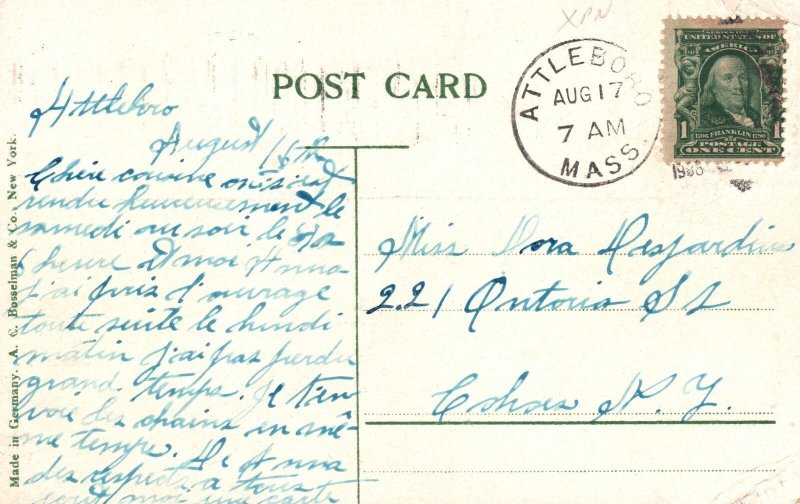 XPN
POST CARD
ATTLEBORO
AUG 17
7 AM
MASS.
1908
SERIES 1902
UNITED STATES OF
AMERICA
1706 FRANKLIN 1790
1 POSTAGE 1
ONE CENT
Attleboro
August
Chère cousine on s'est
rendu heureusement le
samedi au soir le
heure Et moi Anna
j'ai pris l'ouvrage
toute suite le lundi
matin j'ai pas perdu
grand temps. Je t'en
voie les chains en mê-
me temps. Anna
des respects a tous
moi une carte
Miss Dora Desjardins
221 Ontario St
Cohoes N. Y.
Made in Germany. A. C. Bosselman & Co. New York.